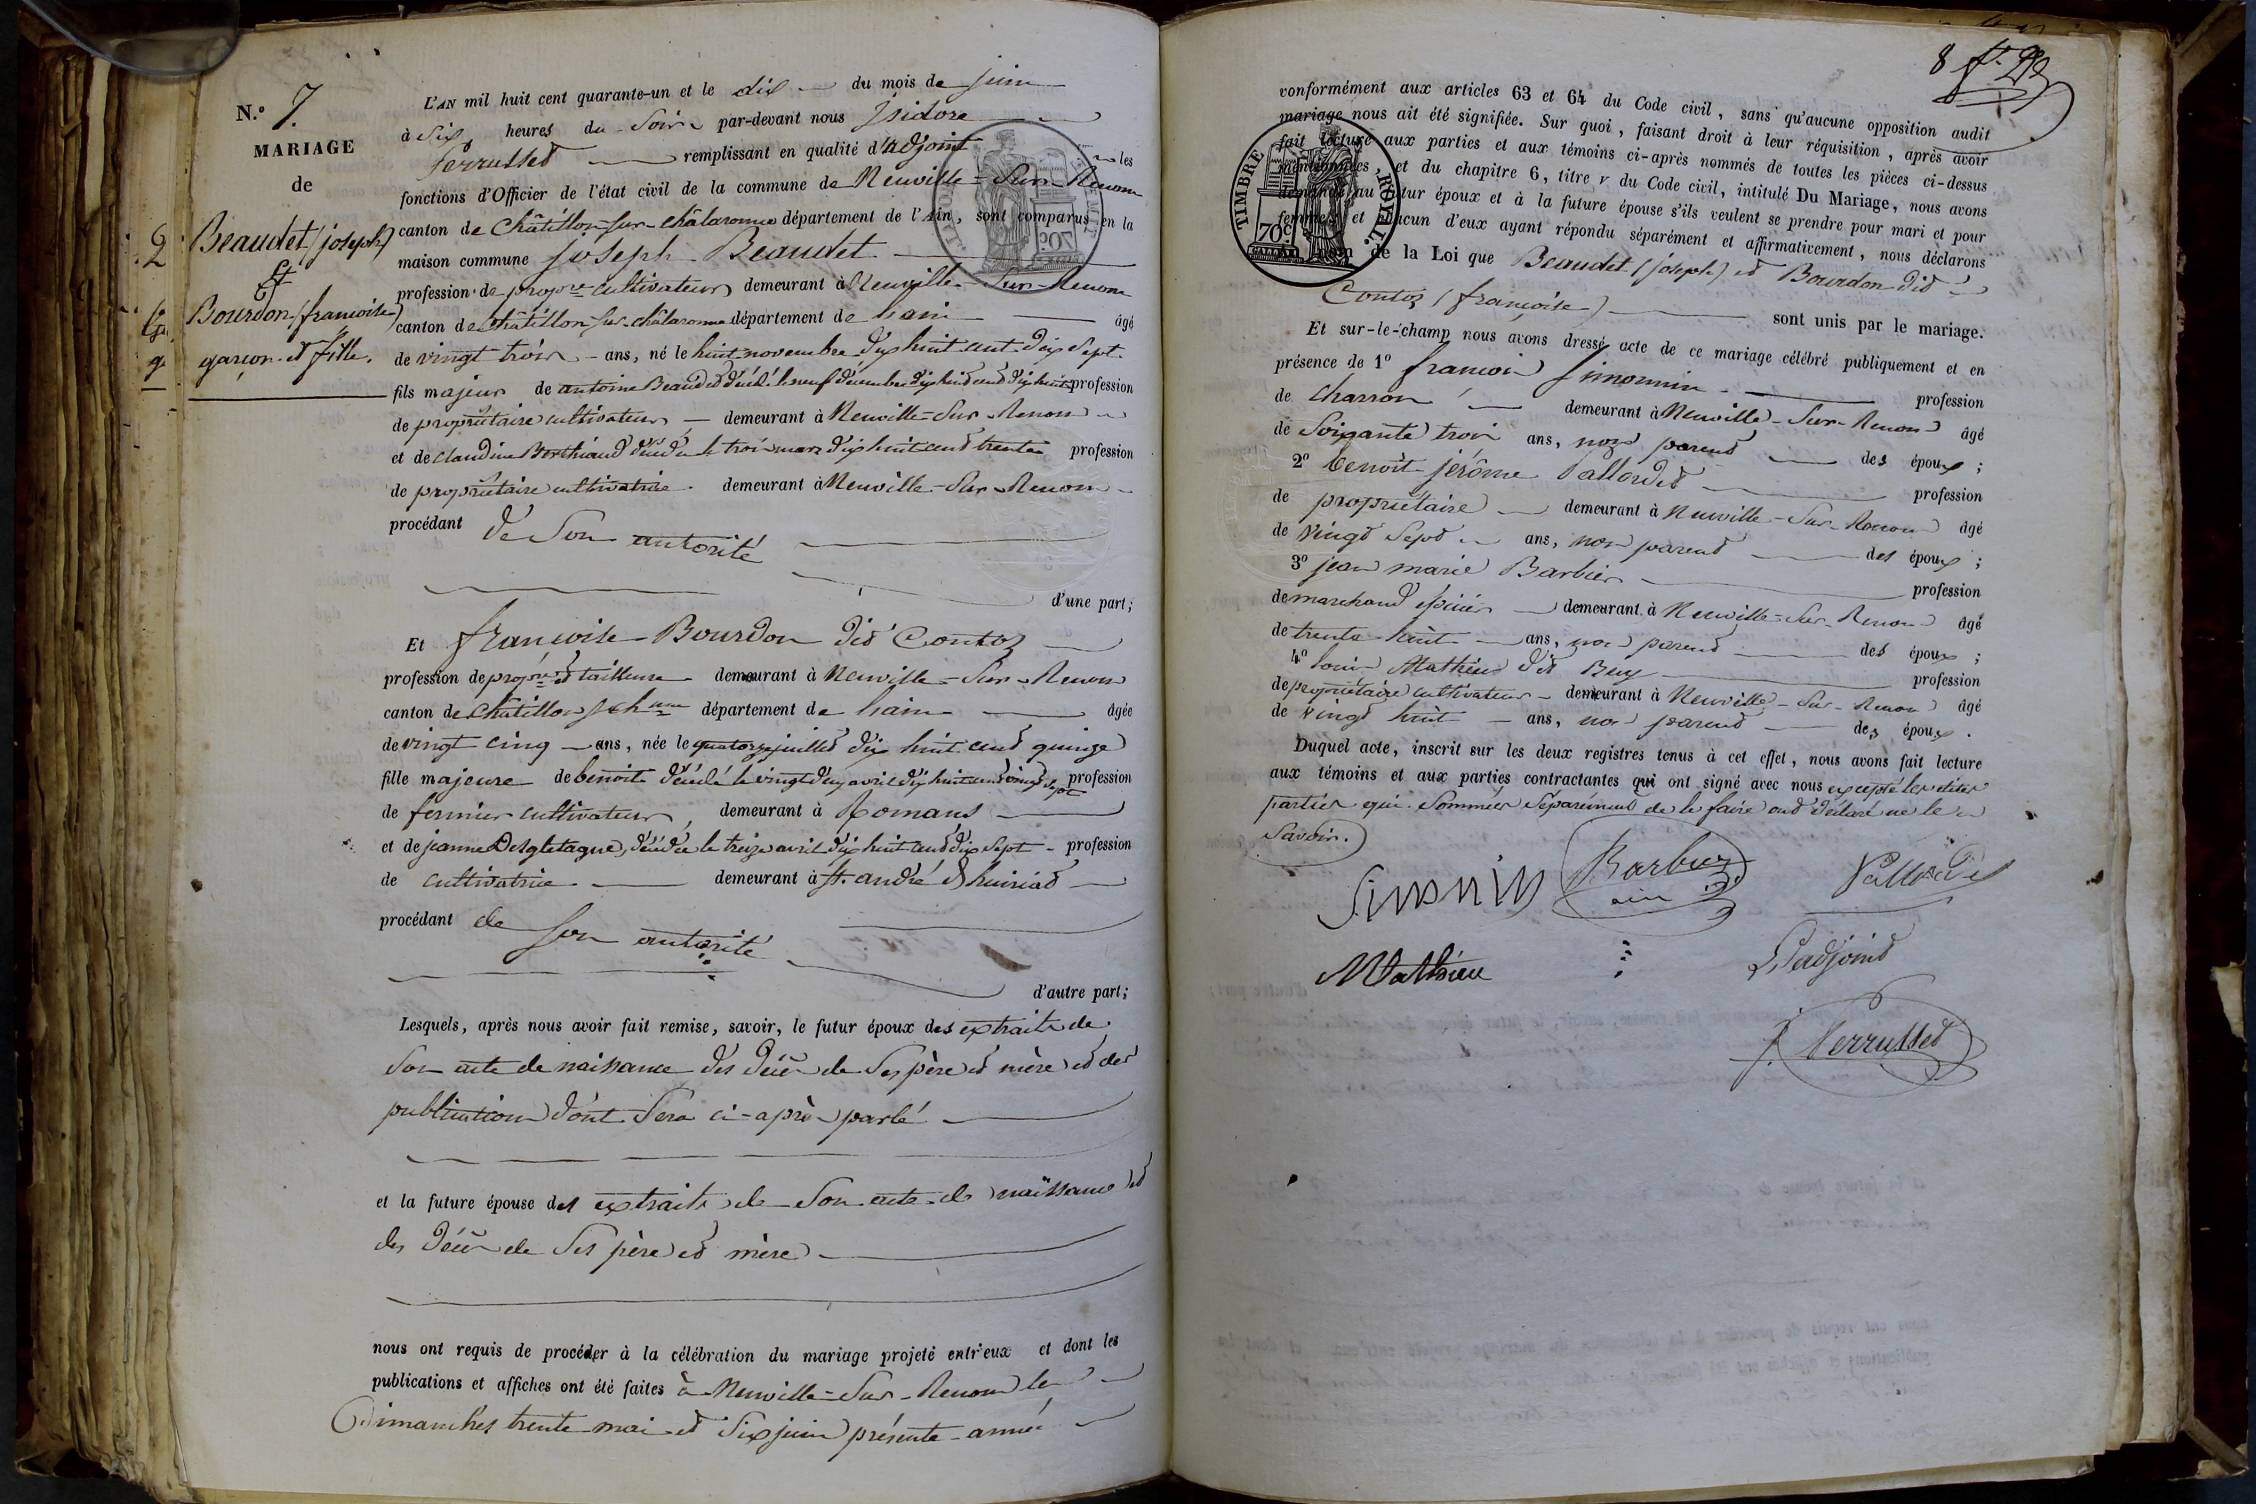 N.º 7.
MARIAGE
de
Beaudet (joseph)
et
Bourdon (francoise)
garçon et fille.
L'AN mil huit cent quarante-un et le dix du mois de juin
à Six heures du Soir par-devant nous Jsidore
Ferrussed remplissant en qualité d'adjoint les
fonctions d'Officier de l'état civil de la commune de Neuville-Sur-Renom
canton de Châtillon-sur-châlaronne département de l'Ain, sont comparus en la
maison commune joseph Beaudet
profession de propre cultivateur demeurant à Neuville-Sur-Renom
canton de Châtillon sur châlaronne département de lain âgé
de vingt trois ans, né le huit novembre dix huit cent dix Sept
fils majeur de antoine Beaudet décédé le neuf décembre dix huit cent dix huit profession
de propriétaire cultivateur demeurant à Neuville-Sur-Renom
et de Claudine Borthiaud décédée le trois mars dix huit cent trente profession
de propriétaire cultivatrice demeurant à Neuville-Sur-Renom
procédant de Son autorité
d'une part;
Et francoise Bourdon did Contoz
profession de propre et tailleuse demeurant à Neuville-Sur-Renom
canton de Châtillon département de lain âgée
de vingt cinq ans, née le quatorze juillet dix huit cent quinze
fille majeure de benoite décédé le vingt deux avril dix huit cent vingt sept profession
de fermier cultivateur, demeurant à Romans
et de jeanne Desgletagne, décédée le treize avril dix huit cent dix Sept profession
de cultivatrice demeurant à St. andré d'huiriat
procédant de Son autorité
d'autre part;
Lesquels, après nous avoir fait remise, savoir, le futur époux des extraits de
Son acte de naissance des décès de Ses père et mère et des
publication dont Sera ci-après parlé
et la future épouse des extraits de Son acte de naissance et
des décès de Ses père et mère
nous ont requis de procéder à la célébration du mariage projeté entr'eux et dont les
publications et affiches ont été faites à Neuville-Sur-Renom les
Dimanches trente mai et Six juin présente année
8
conformément aux articles 63 et 64 du Code civil, sans qu'aucune opposition audit
mariage nous ait été signifiée. Sur quoi, faisant droit à leur réquisition, après avoir
fait lecture aux parties et aux témoins ci-après nommés de toutes les pièces ci-dessus
mentionnées, et du chapitre 6, titre V du Code civil, intitulé Du Mariage, nous avons
demandé au futur époux et à la future épouse s'ils veulent se prendre pour mari et pour
femme, et chacun d'eux ayant répondu séparément et affirmativement, nous déclarons
au nom de la Loi que Beaudet (joseph) et Bourdon did
Contoz (françoise) sont unis par le mariage.
TIMBRE ROYAL.
70c.
Et sur-le-champ nous avons dressé acte de ce mariage célébré publiquement et en
présence de 1º francois Simonnin profession
de charron demeurant à Neuville-Sur-Renom âgé
de Soixante trois ans, non parent des époux;
2º benoit jérôme Vallordet profession
de propriétaire demeurant à Neuville-Sur-Renom âgé
de vingt Sept ans, non parent des époux;
3º jean marie Barbier profession
de marchand épicier demeurant à Neuville-Sur-Renom âgé
de trente huit ans, non parent des époux;
4º louis Mathieu did Rey profession
de propriétaire cultivateur demeurant à Neuville-Sur-Renom âgé
de vingt huit ans, non parent des époux.
Duquel acte, inscrit sur les deux registres tenus à cet effet, nous avons fait lecture
aux témoins et aux parties contractantes qui ont signé avec nous excepté les dites
parties qui Sommées Séparément de le faire ont déclaré ne le
Savoir.
Simonin Barbier Vallordet
Mathieu L'adjoint
J. Ferrussed